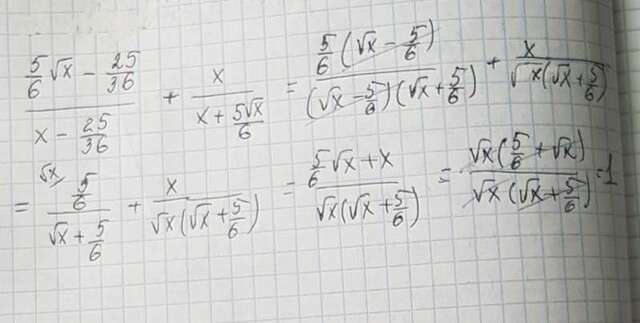 (5/6 √x − 25/36)/(x − 25/36) + x/(x + 5√x/6) = (5/6 (√x − 5/6))/((√x − 5/6)(√x + 5/6)) + x/(√x(√x + 5/6))
= (√x 5/6)/(√x + 5/6) + x/(√x(√x + 5/6)) = (5/6 √x + x)/(√x(√x + 5/6)) = (√x(5/6 + √x))/(√x(√x + 5/6)) = 1